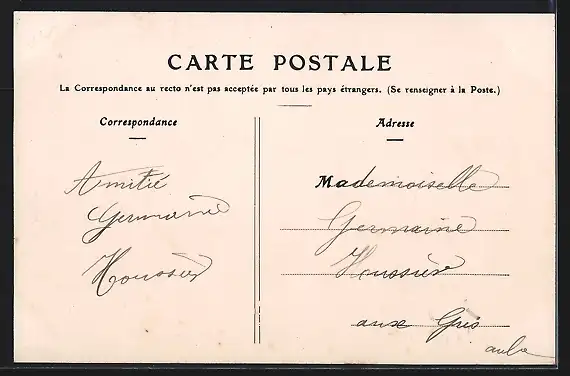 CARTE POSTALE
La Correspondance au recto n'est pas acceptée par tous les pays étrangers. (Se renseigner à la Poste.)
Correspondance
Amitié
Germaine
Houssier
Adresse
Mademoiselle
Germaine
Houssière
aux Gris
aube